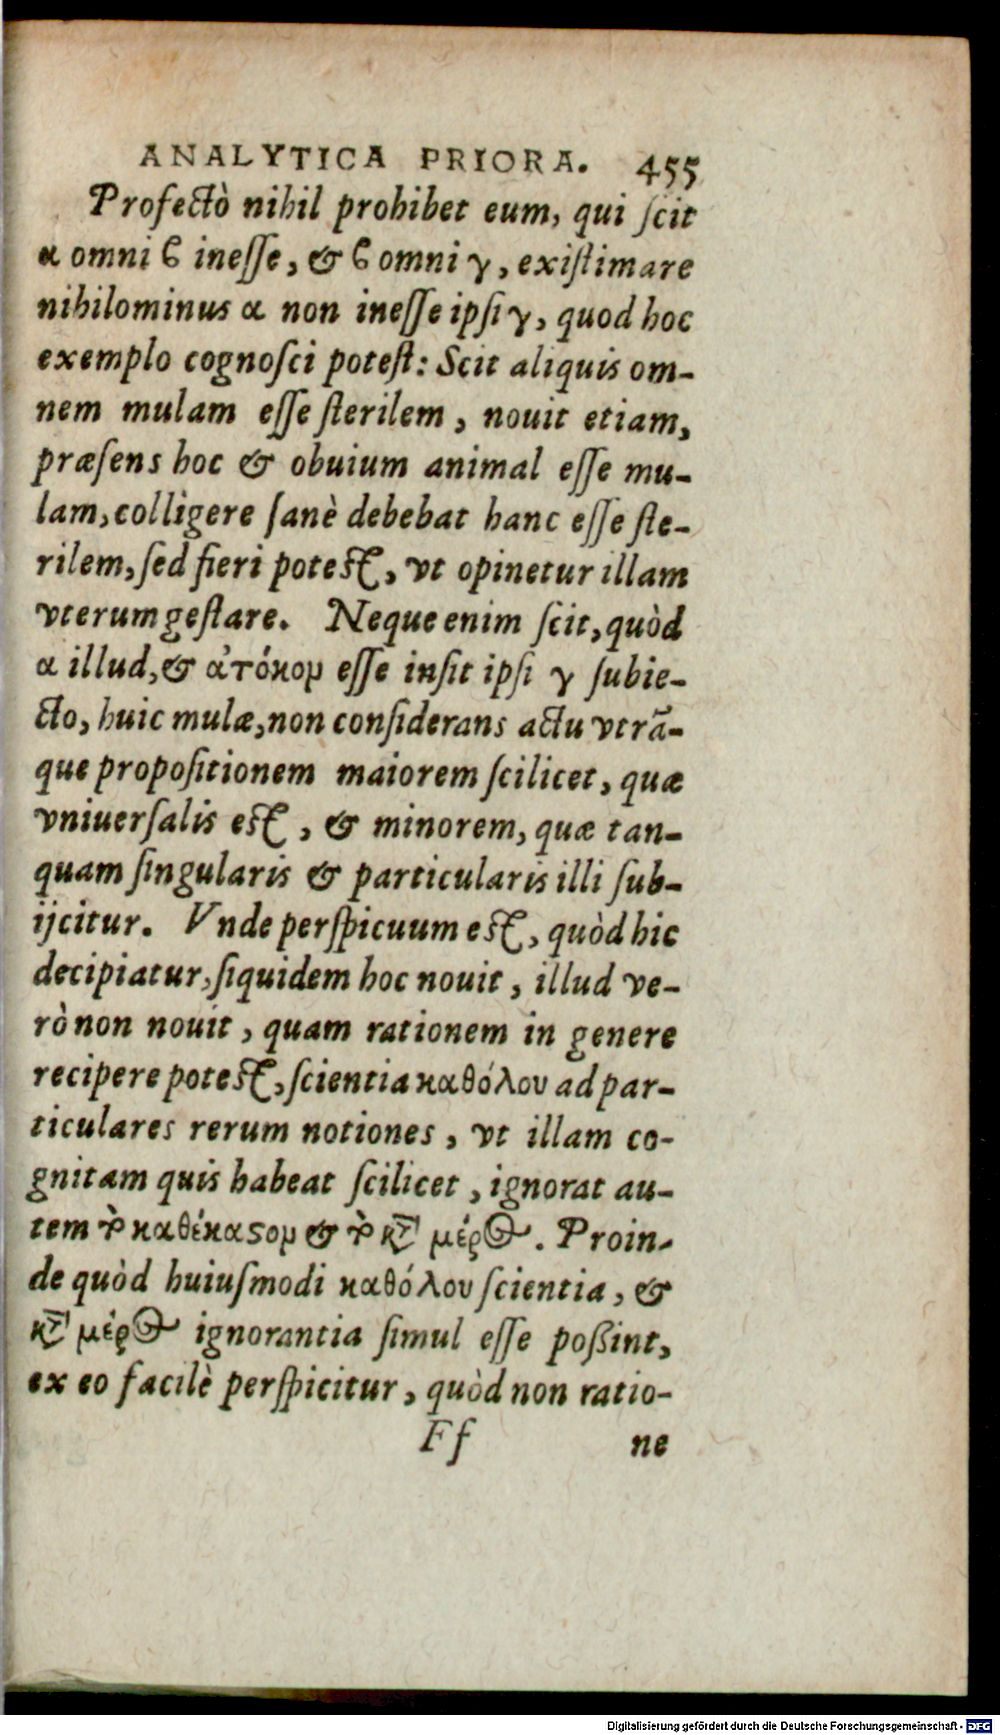 ANALYTICA PRIORA. 455
Profectò nihil prohibet eum, qui scit
α omni ϐ inesse, & ϐ omni γ, existimare
nihilominus α non inesse ipsi γ, quod hoc
exemplo cognosci potest: Scit aliquis om-
nem mulam esse sterilem, nouit etiam,
præsens hoc & obuium animal esse mu-
lam, colligere sanè debebat hanc esse ste-
rilem, sed fieri potest, vt opinetur illam
vterum gestare. Neque enim scit, quòd
α illud, & ἀτόκον esse insit ipsi γ subie-
cto, huic mulæ, non considerans actu vtrã-
que propositionem maiorem scilicet, quæ
vniuersalis est, & minorem, quæ tan-
quam singularis & particularis illi sub-
ijcitur. Vnde perspicuum est, quòd hic
decipiatur, siquidem hoc nouit, illud ve-
rò non nouit, quam rationem in genere
recipere potest, scientia καθόλου ad par-
ticulares rerum notiones, vt illam co-
gnitam quis habeat scilicet, ignorat au-
tem τὸ καθέκαϛον & τὸ κτ̀ μέρος. Proin-
de quòd huiusmodi καθόλου scientia, &
κτ̀ μέρος ignorantia simul esse poßint,
ex eo facilè perspicitur, quòd non ratio-
Ff ne
Digitalisierung gefördert durch die Deutsche Forschungsgemeinschaft - DFG